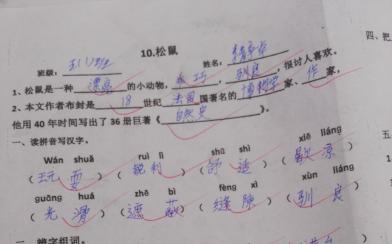 10.松鼠
班级: 姓名:
1、松鼠是一种 漂亮 的小动物, 乖巧, 驯良, 很讨人喜欢。
2、本文作者布封是 18 世纪 法国 国著名的 博物学 家、 作 家,
他用 40 年时间写出了 36 册巨著《 自然史 》。
一、读拼音写汉字。
Wán shuǎ ruì lì shū shì xiē liáng
(玩耍) (锐利) (舒适) (歇凉)
guāng huá zhē bì fèng xì xùn liáng
(光滑) (遮蔽) (缝隙) (驯良)
二、辨字组词。
四、把
五